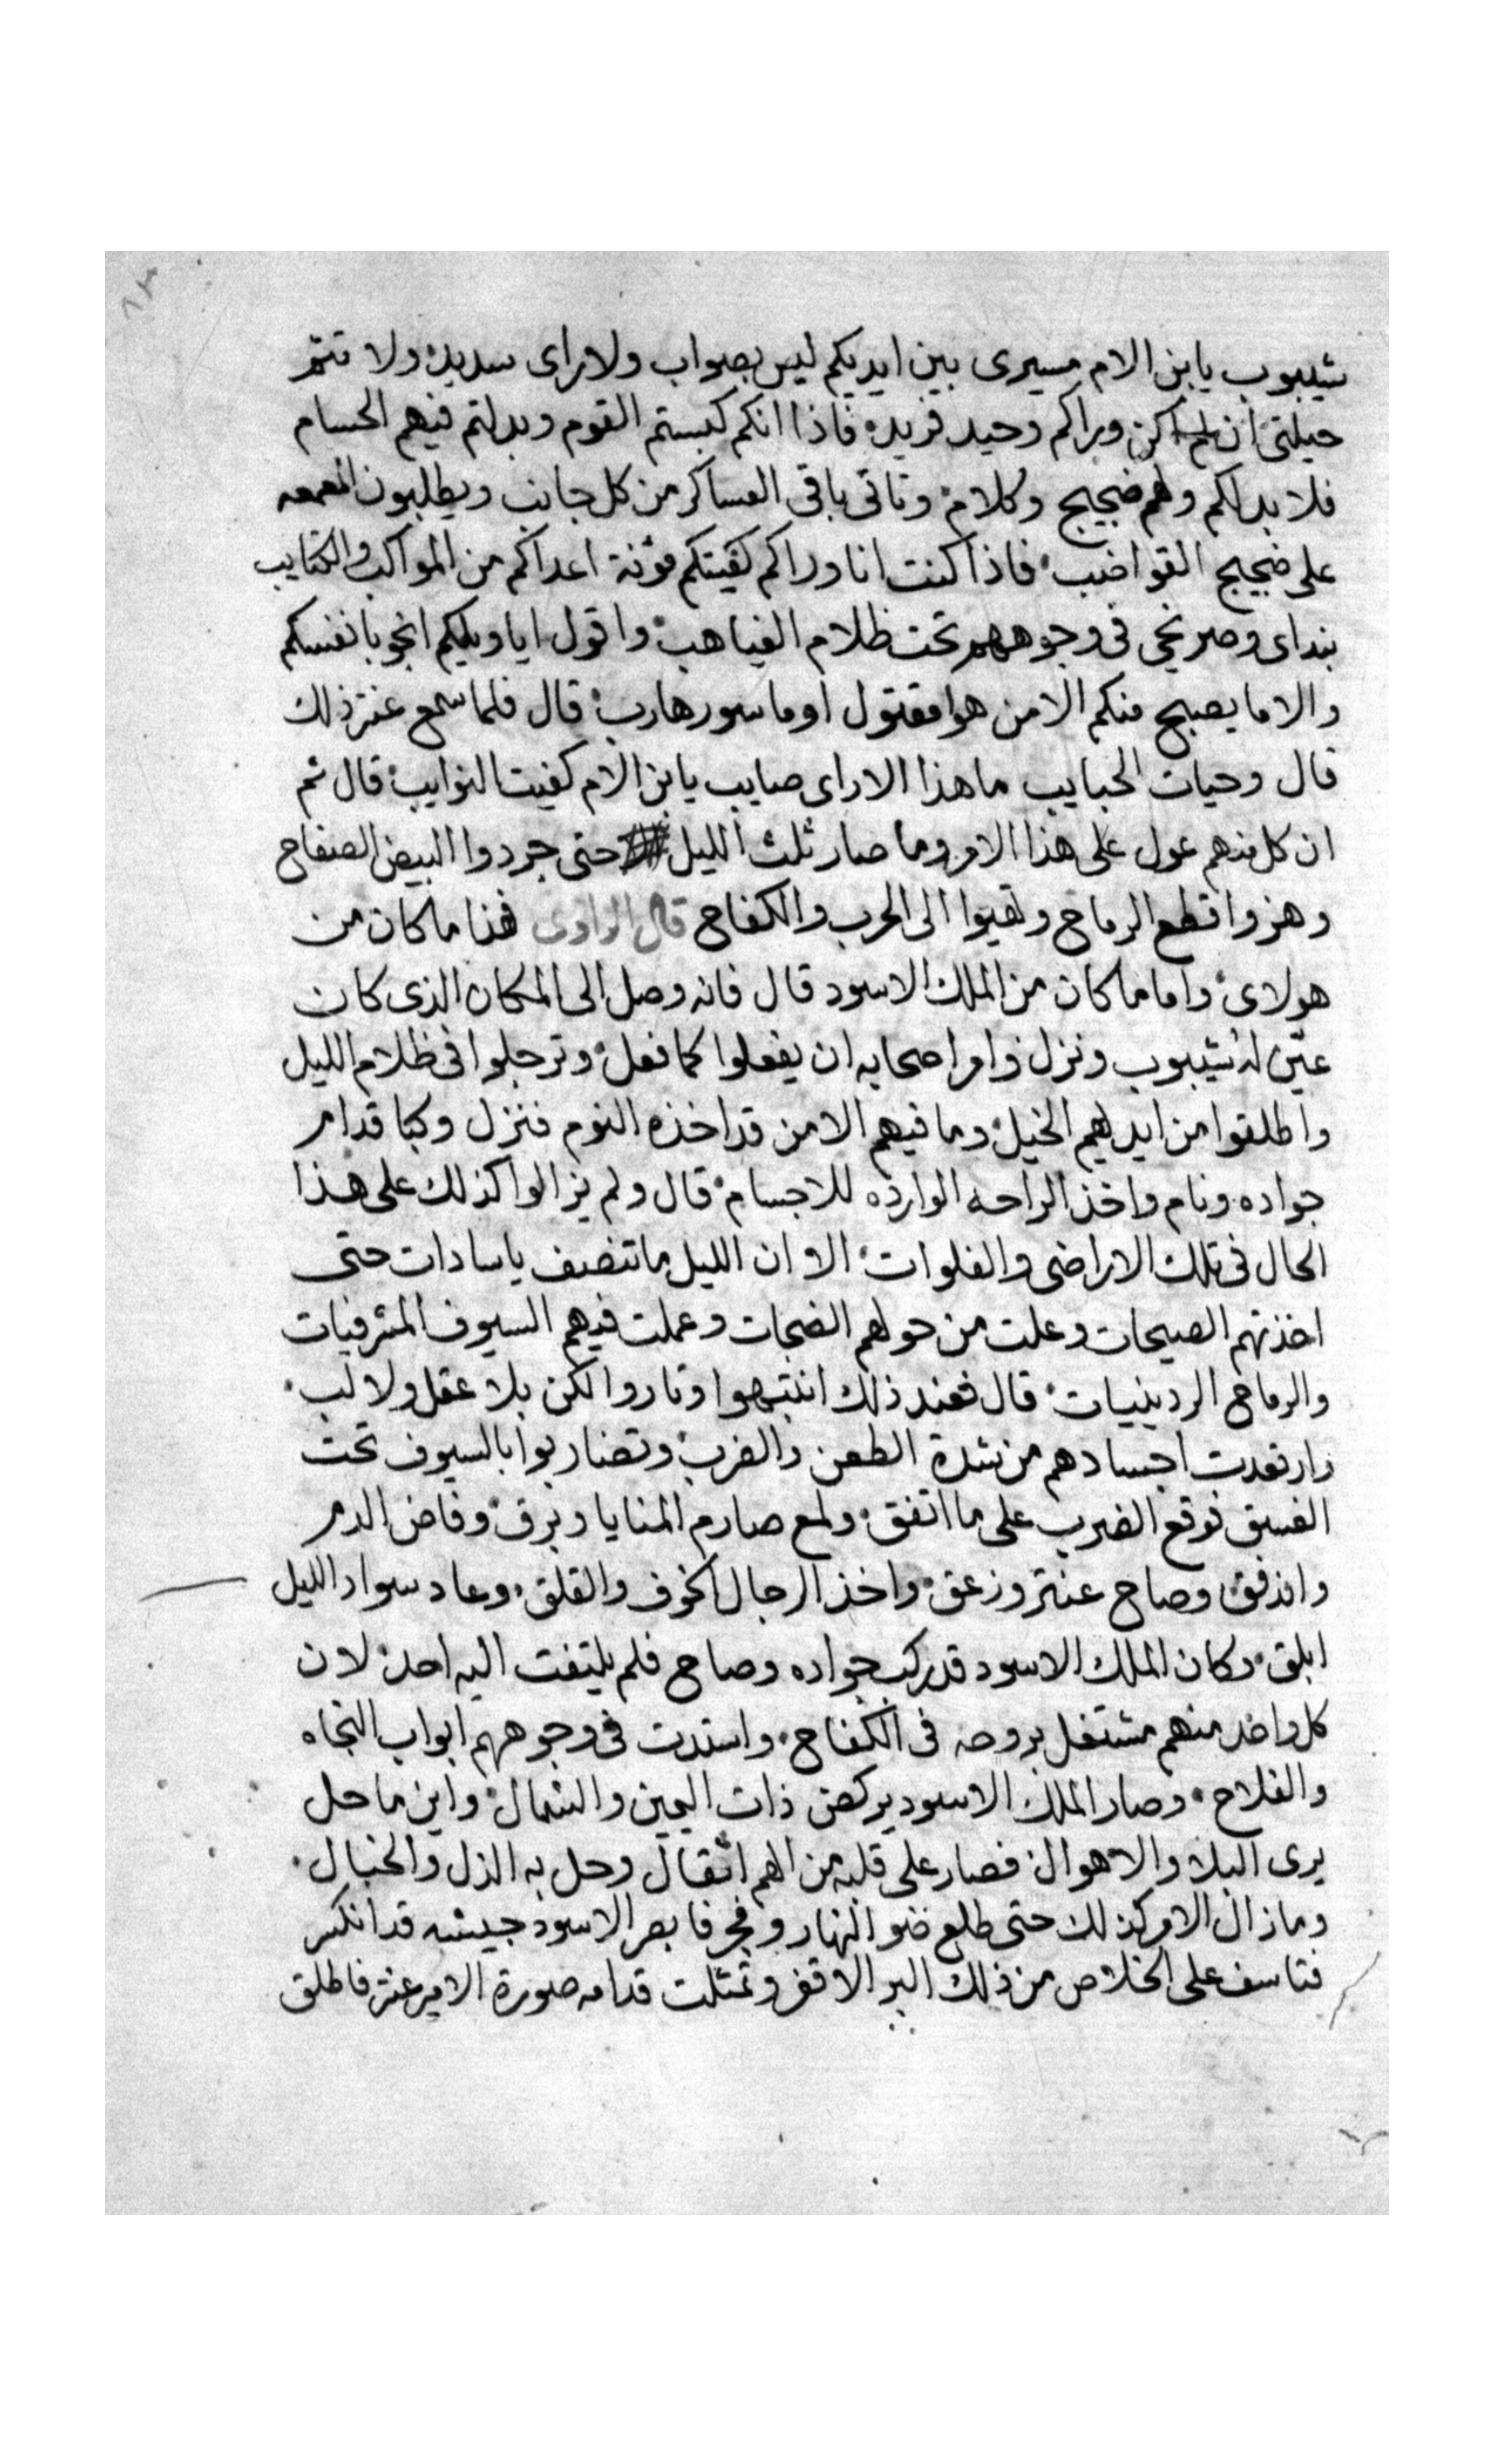 ٨٣
شيبوب يا بن الام مسيرى بين ايديكم ليس بصواب ولا راى سديد ولا تتم
حيلتى ان لم اكن وراكم وحيد فريد فاذا انكم كبستم القوم وبدلتم فيهم الحسام
فلا بد لكم ولهم ضجيج وكلام وتاتى باقى العساكر من كل جانب ويطلبون المعمعه
على ضجيج القواضب فاذا كنت انا وراكم كفيتكم مؤنة اعداكم من المواكب والكتايب
بنداى وصريخى فى وجوههم تحت ظلام الغياهب واقول ايا ويلكم انجو بانفسكم
والا ما يصبح منكم الا من هوا مقتول او ماسور هارب قال فلما سمع عنتر ذلك
قال وحيات الحبايب ما هذا الا راى صايب يا بن الام كفيت النوايب قال ثم
ان كل منهم عول على هذا الامر وما صار ثلث الليل حتى جردوا البيض الصفاح
وهزوا قطع الرماح وتهيوا الى الحرب والكفاح قال الراوى فهذا ما كان من
هولاى واما ما كان من الملك الاسود قال فانه وصل الى المكان الذى كان
عين له شيبوب ونزل وامر اصحابه ان يفعلوا كما فعل وترجلوا فى ظلام الليل
واطلقوا من ايديهم الخيل وما فيهم الا من قد اخذه النوم فنزل وكبا قدام
جواده ونام واخذ الراحه الوارده للاجسام قال ولم يزالوا كذلك على هذا
الحال فى تلك الاراضى والفلوات الا وان الليل ما تنصف يا سادات حتى
اخذتهم الصيحات وعلت من حولهم الضجات وعملت فيهم السيوف المشرفيات
والرماح الردينيات قال فعند ذلك انتبهوا وثاروا لكن بلا عقل ولا لب
وارتعدت اجسادهم من شدة الطعن والضرب وتضاربوا بالسيوف تحت
الغسق فوقع الضرب على ما اتفق ولمع صارم المنايا وبرق وفاض الدم
واندفق وصاح عنتر وزعق واخذ الرجال الخوف والقلق وعاد سواد الليل
ابلق وكان الملك الاسود قد ركب جواده وصاح فلم يلتفت اليه احد لان
كل واحد منهم مشتغل بروحه فى الكفاح واستدت فى وجوههم ابواب النجاه
والفلاح وصار الملك الاسود يركض ذات اليمين والشمال واين ما حل
يرى البلا والاهوال فصار على قلبه من الهم اثقال وحل به الذل والخبال
وما زال الامر كذلك حتى طلع ضو النهار وفجر فابصر الاسود جيشه قد انكسر
فتاسف على الخلاص من ذلك البر الاقفر وتمثلت قدامه صورة الامير عنتر فاطلق